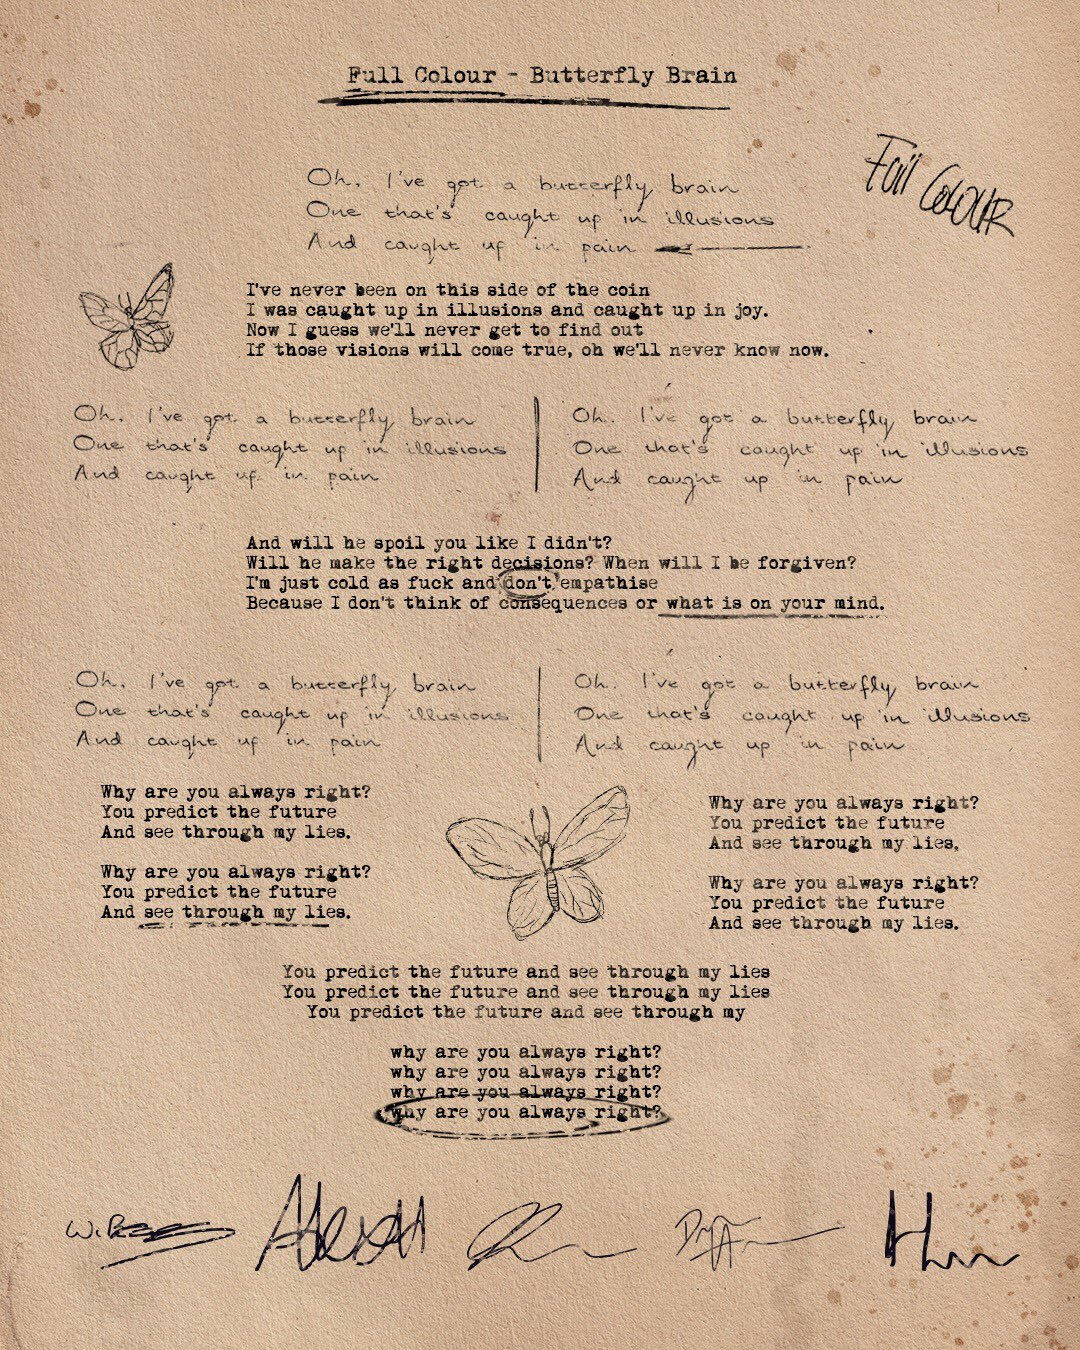 Full Colour - Butterfly Brain
Full COLOUR
Oh, I've got a butterfly brain
One that's caught up in illusions
And caught up in pain
I've never been on this side of the coin
I was caught up in illusions and caught up in joy.
Now I guess we'll never get to find out
If those visions will come true, oh we'll never know now.
Oh, I've got a butterfly brain
One that's caught up in illusions
And caught up in pain
Oh, I've got a butterfly brain
One that's caught up in illusions
And caught up in pain
And will he spoil you like I didn't?
Will he make the right decisions? When will I be forgiven?
I'm just cold as fuck and don't empathise
Because I don't think of consequences or what is on your mind.
Oh, I've got a butterfly brain
One that's caught up in illusions
And caught up in pain
Oh, I've got a butterfly brain
One that's caught up in illusions
And caught up in pain
Why are you always right?
You predict the future
And see through my lies.
Why are you always right?
You predict the future
And see through my lies.
Why are you always right?
You predict the future
And see through my lies.
Why are you always right?
You predict the future
And see through my lies.
You predict the future and see through my lies
You predict the future and see through my lies
You predict the future and see through my
why are you always right?
why are you always right?
why are you always right?
why are you always right?